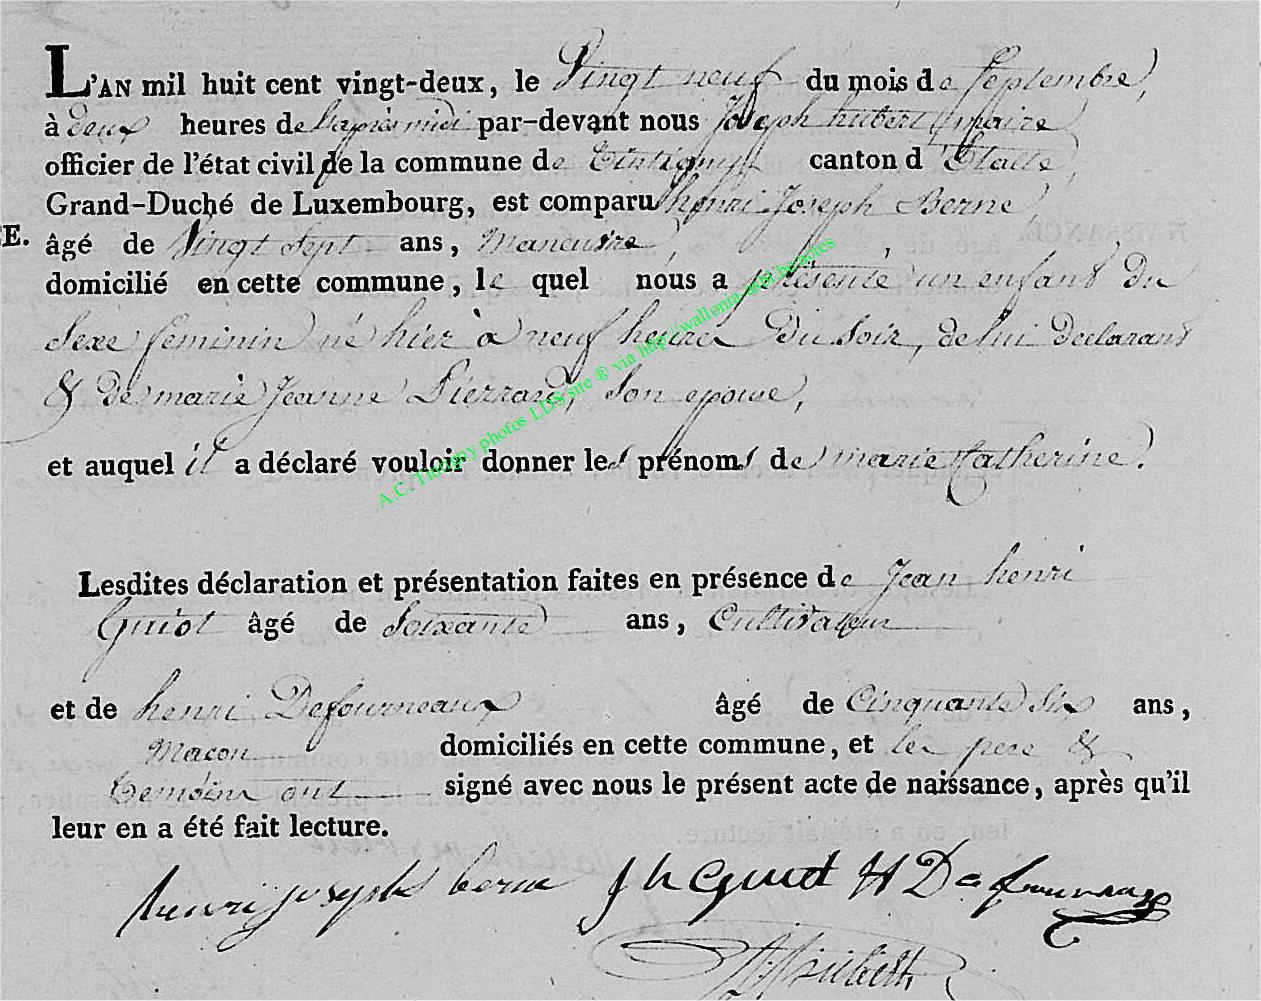 L'AN mil huit cent vingt-deux, le Vingt neuf du mois de Septembre,
à deux heures de l'après midi par-devant nous Joseph hubert, maire
officier de l'état civil de la commune de Tintigny canton d'Etalle,
Grand-Duché de Luxembourg, est comparu henri Joseph Berne,
E. âgé de Vingt Sept ans, manœuvre,
domicilié en cette commune, le quel nous a présenté un enfant du
Sexe feminin né hier à neuf heures du soir, de lui declarant
& de marie Jeanne Pierrard, son epouse,
et auquel il a déclaré vouloir donner les prénoms de marie Catherine.
A.C. Tintigny photos LDS site ® via http://wallonia-asbl.be/actes
Lesdites déclaration et présentation faites en présence de Jean henri
Guiot âgé de Soixante ans, Cultivateur
et de henri Defourneaux âgé de Cinquante Six ans,
Macon domiciliés en cette commune, et les pere &
temoins ont signé avec nous le présent acte de naissance, après qu'il
leur en a été fait lecture.
henri joseph berne J h Guiot H Defourneaux
Hubert